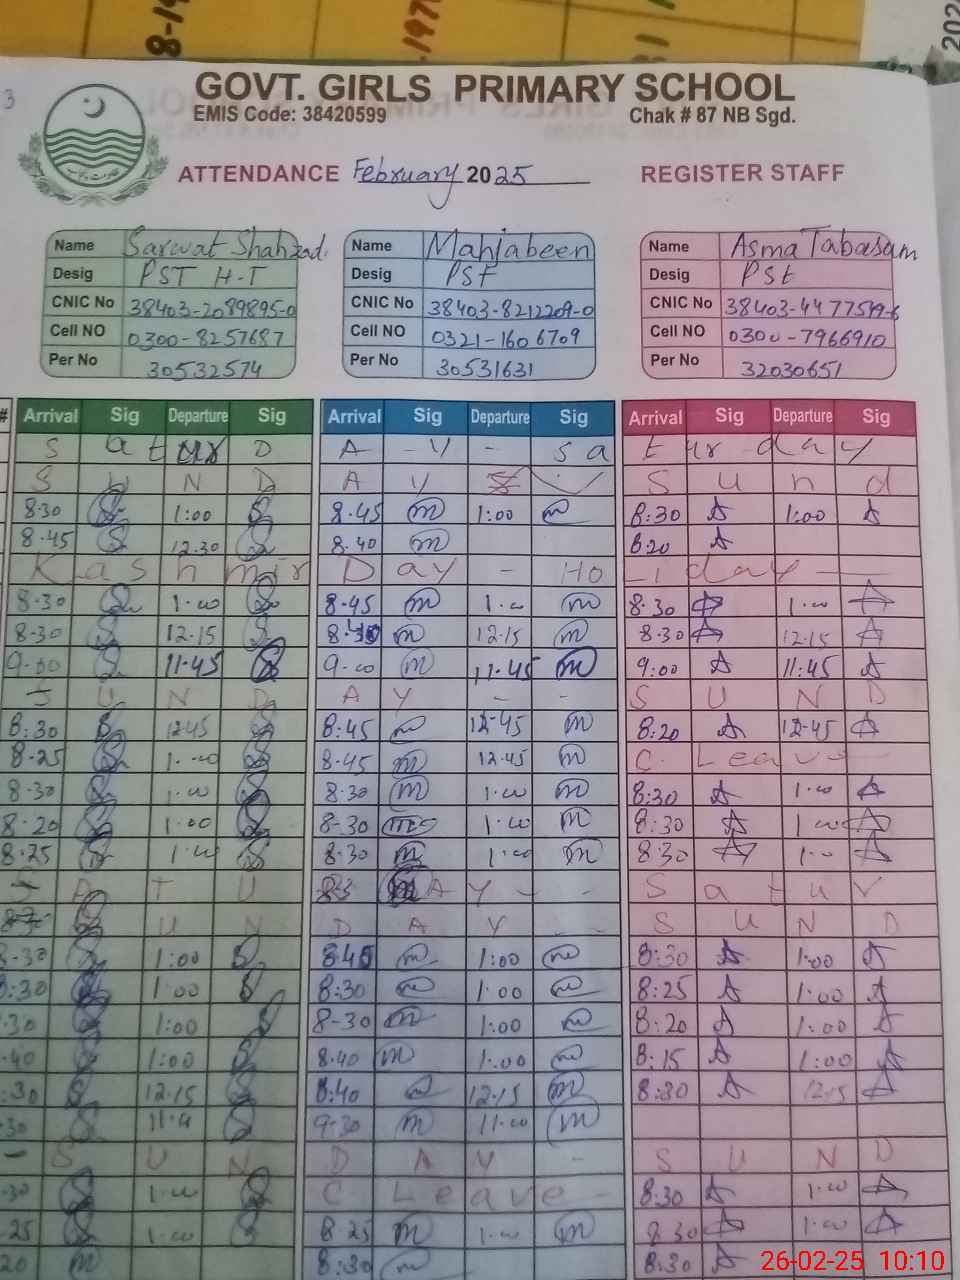 GOVT. GIRLS PRIMARY SCHOOL
EMIS Code: 38420599 Chak # 87 NB Sgd.
ATTENDANCE February 2025 REGISTER STAFF
Name Sarwat Shahzad Name Mahjabeen Name Asma Tabasam
Desig PST H-T Desig PST Desig PSt
CNIC No 38403-2089895-0 CNIC No 38403-8212209-0 CNIC No 38403-4477519-6
Cell NO 0300-8257687 Cell NO 0321-1606709 Cell NO 0300-7966910
Per No 30532574 Per No 30531631 Per No 32030651
# Arrival Sig Departure Sig Arrival Sig Departure Sig Arrival Sig Departure Sig
S a t ur D A - y - S a t ur day
S U N D A y S U n d
8:30 1:00 8.45 m 1:00 m 8:30 A 1:00 A
8.45 12.30 8.40 m 8:20 A
Kashmir Day - Holiday
8.30 1.00 8.45 m 1.00 m 8.30 A 1.00 A
8.30 12.15 m 12.15 m 8.30 A 12.15 A
9.00 11.45 9.00 m 11.45 m 9:00 A 11:45 A
S U N D A y - - S U N D
8:30 1245 8:45 m 12-45 m 8:20 A 12-45 A
8.25 1.00 8.45 m 12.45 m C. Leave
8.30 1.00 8.30 m 1.00 m 8:30 A 1.00 A
8.20 1.00 8-30 m 1.00 m 8:30 A 1.00 A
8.25 1.00 8.30 m 1.00 m 8:30 A 1.00 A
S A T U A y - - S a t u r
U N D A Y - - S U N D
-30 1:00 8.45 m 1:00 m 8:30 A 1:00 A
:30 1:00 8:30 m 1:00 m 8:25 A 1:00 A
30 1:00 8-30 m 1:00 m 8:20 A 1:00 A
.40 1:00 8.40 m 1:00 m 8:15 A 1:00 A
:30 12.15 8:40 m 12.15 m 8:30 A 12.15 A
30 9-30 m 11.00 m
- S U N D A Y - S U N D
.30 1.00 C Leave - 8:30 A 1.00 A
.25 1.00 8.25 m 1.00 m 8.30 A 1.00 A
20 m 8:30 m 8:30 A
26-02-25 10:10